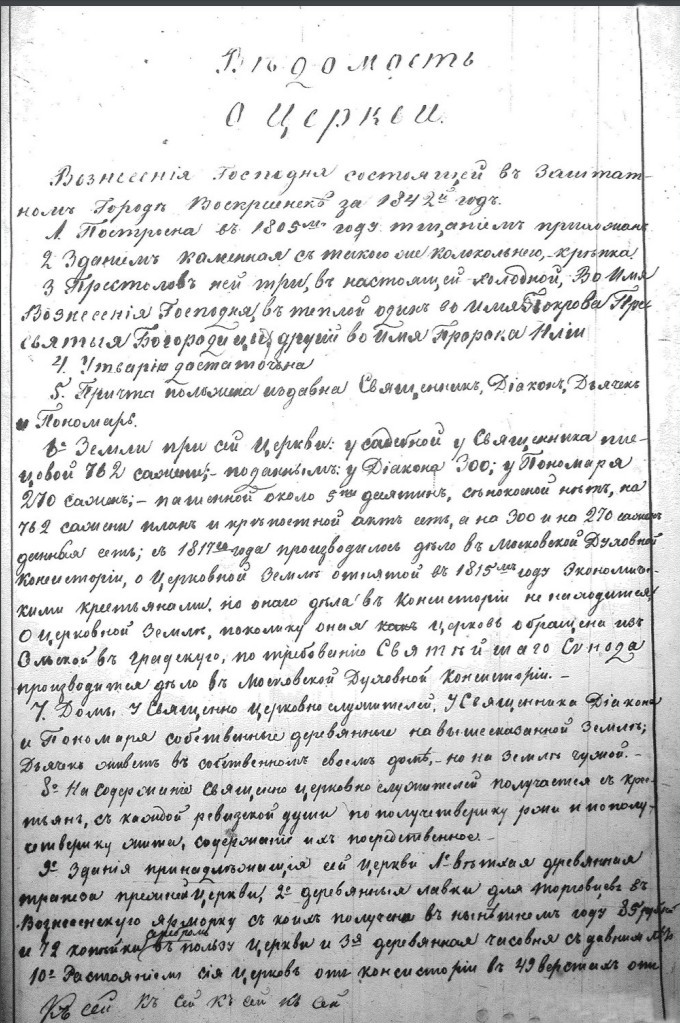 Вѣдомость
О Церкви.
Вознесенія Господня состоящей въ Заштат-
номъ Городѣ Воскресенскѣ за 1842й годъ.
1. Построена въ 1805мъ году тщаніемъ прихожанъ
2 Зданіемъ каменная съ такою же колокольнею, крѣпка.
3 Престоловъ ней три, въ настоящей холодной, Во Имя
Вознесенія Господня, въ теплой одинъ во имя Покрова Пре
святыя Богородицы, другій во имя Пророка Иліи
4. Утварію достаточна
5. Причта положена издавна Священникъ, Діаконъ, Дьячекъ
и Пономарь.
6е Земли при сей Церкви: усадебной у Священника пле-
цовой 762 сажени; - поданнымъ: у Діакона 300; у Пономаря
270 сажень; - пашенной около 5ти десятинъ, сѣнокосной нѣтъ, на
762 сажени планъ и крѣпостной актъ есть, а на 300 и на 270 сажень
данная есть; съ 1817го года производилось дѣло въ Московской Духовной
Консисторіи, о Церковной Землѣ отнятой въ 1815мъ году Экономиче-
скими крестьянами но онаго дѣла въ Консисторіи не находится,
О церковной Землѣ, поколику оная церковь обращена изъ
Сельской въ градскую, по требованію Святѣйшаго Сѵнода
производится дѣло въ Московской Духовной Консисторіи. -
7. Домы У Священно церковно служителей, У Священника Діакона
и Пономаря собственные деревянные на вышесказанной Землѣ;
Дьячекъ живетъ въ собственномъ своемъ домѣ, - но на Землѣ чужой. -
8е На Содержаніе Священно церковно служителей получается съ кре-
стьянъ, съ каждой ревизской души по получетверику ржи и по полу-
четверику жита, содержаніе ихъ посредственное. -
9е Зданія принадлежащія сей Церкви 1е вѣтхая деревянная
трапеза прежней Церкви, 2е деревянныя лавки для торговцевъ въ
Вознесенскую ярморку съ коихъ получено въ нынѣшнемъ году 85 рублей
и 72 копѣйки серебромъ въ пользу Церкви и 3я деревянная часовня съ давнихъ лѣтъ
10е Растояніемъ сія Церковь отъ консисторіи въ 49 верстахъ отъ
Къ сей Къ сей Къ сей Къ сей